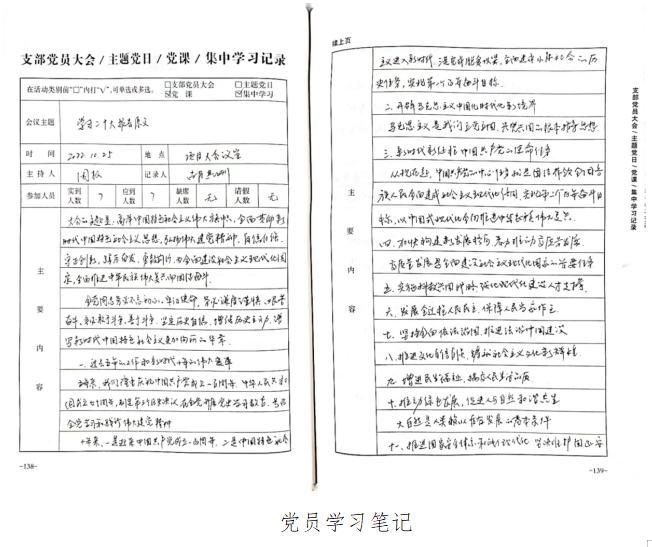 支部党员大会/主题党日/党课/集中学习记录
在活动类别前“□”内打“√”,可单选或多选。
□支部党员大会 □主题党日
☑党 课 ☑集中学习
会议主题 学习二十大报告原文
时 间 2022.10.25 地 点 项目大会议室
主 持 人 周 记录人
参加人员 实到人数 7 应到人数 7 缺席人数 无 请假人数 无
主要内容
大会的主题是:高举中国特色社会主义伟大旗帜,全面贯彻新
时代中国特色社会主义思想,弘扬伟大建党精神,自信自强、
守正创新,踔厉奋发、勇毅前行,为全面建设社会主义现代化国
家,全面推进中华民族伟大复兴而团结奋斗。
全党同志务必不忘初心、牢记使命,务必谦虚谨慎、艰苦
奋斗,务必敢于斗争、善于斗争,坚定历史自信,增强历史主动,谱
写新时代中国特色社会主义更加绚丽的华章。
一、过去五年的工作和新时代十年的伟大变革
五年来,我们隆重庆祝中国共产党成立一百周年、中华人民共和
国成立七十周年,制定第三个历史决议,在全党开展党史学习教育,号召
全党学习和践行伟大建党精神
十年来,一是迎来中国共产党成立一百周年,二是中国特色社会
-138-
续上页
主义进入新时代,三是完成脱贫攻坚、全面建成小康社会的历
史任务,实现第一个百年奋斗目标。
二、开辟马克思主义中国化时代化新境界
马克思主义是我们立党立国、兴党兴国的根本指导思想。
三、新时代新征程中国共产党的使命任务
从现在起,中国共产党的中心任务就是团结带领全国各
族人民全面建成社会主义现代化强国、实现第二个百年奋斗目
标,以中国式现代化全面推进中华民族伟大复兴。
四、加快构建新发展格局,着力推动高质量发展
高质量发展是全面建设社会主义现代化国家的首要任务
五、实施科教兴国战略,强化现代化建设人才支撑
六、发展全过程人民民主,保障人民当家作主
七、坚持全面依法治国,推进法治中国建设
八、推进文化自信自强,铸就社会主义文化新辉煌
九、增进民生福祉,提高人民生活品质
十、推动绿色发展,促进人与自然和谐共生
大自然是人类赖以生存发展的基本条件
十一、推进国家安全体系和能力现代化,坚决维护国家安
主要内容
支部党员大会/主题党日/党课/集中学习记录
-139-
党员学习笔记